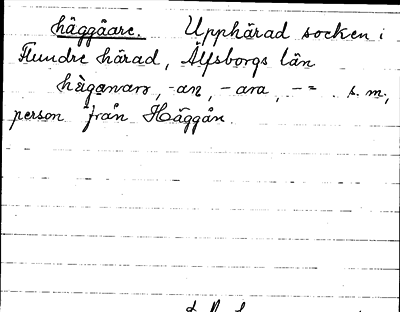 häggåare. Upphärad socken i
Flundre härad, Älfsborgs län
-an, -ara, -= s. m.,
person från Häggån.